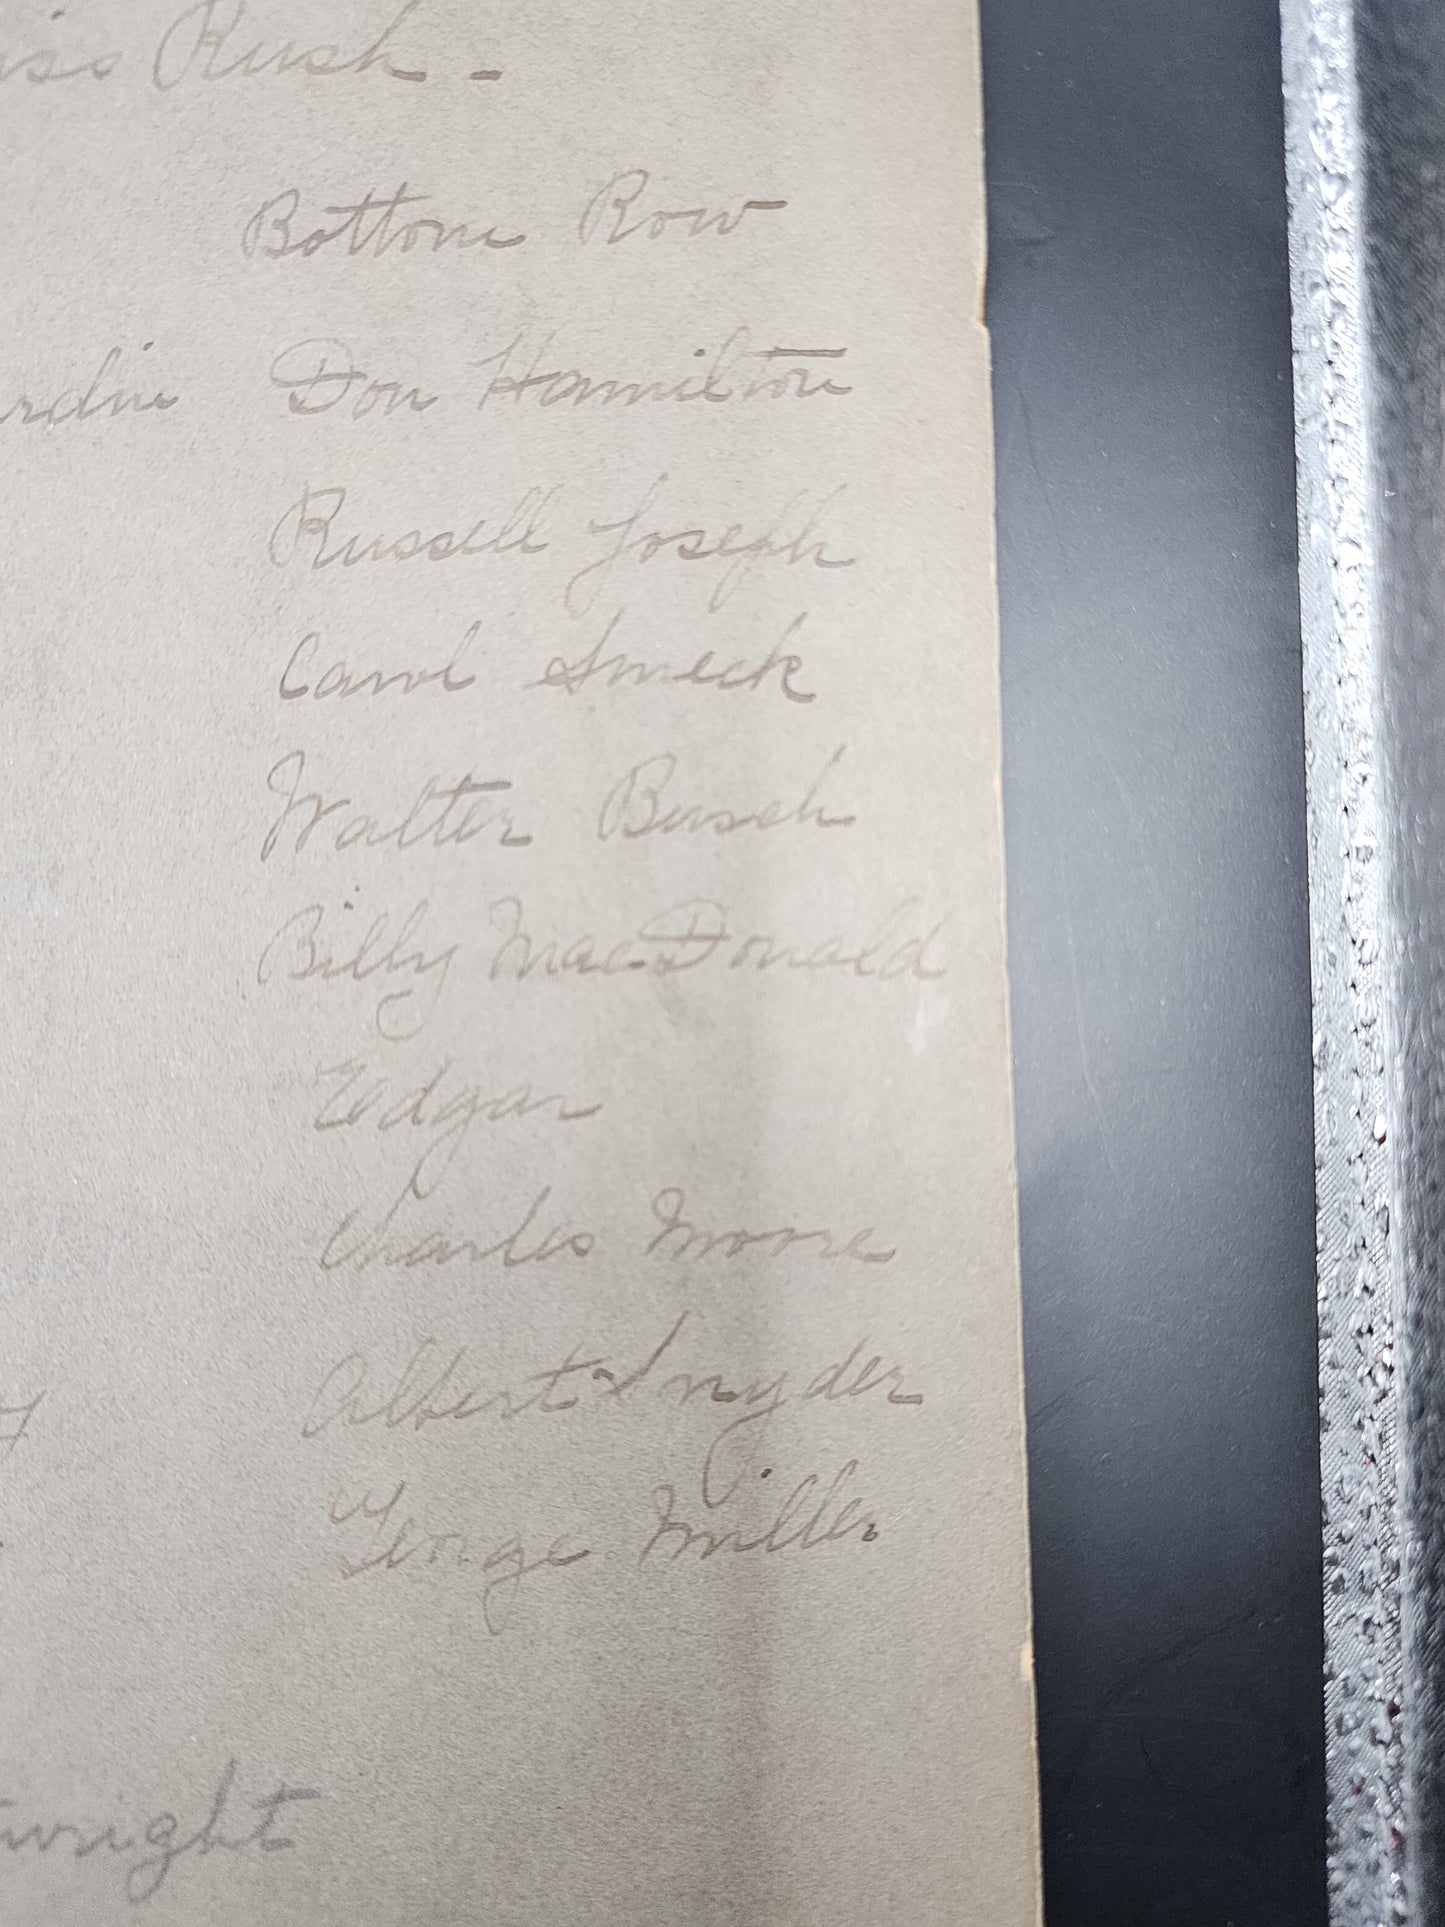 iss Rush -
Bottom Row
rdin Don Hamilton
Russell Joseph
Carol Smeck
Walter Busch
Billy MacDonald
Edgar
Charles Moore
Albert Snyder
George Miller
wright